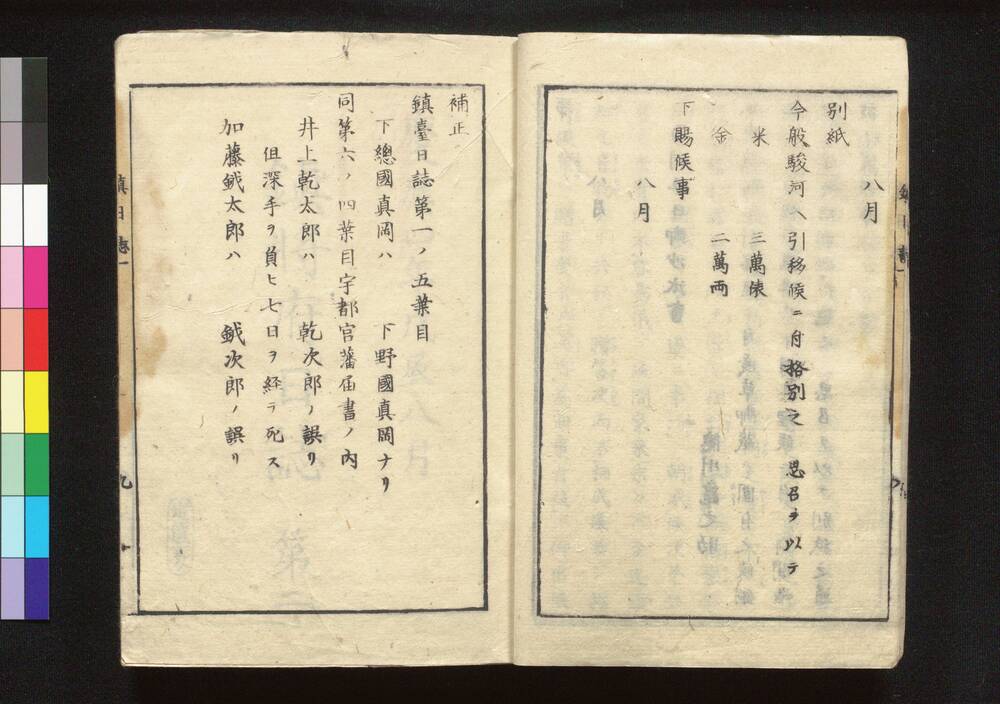 八月
別紙
今般駿河ヘ引移候ニ付格別之 思召ヲ以テ
米 三萬俵
金 二萬両
下賜候事
八月
補正
鎮臺日誌第一ノ五葉目
下總國真岡ハ 下野國真岡ナリ
同第六ノ四葉目宇都宮藩届書ノ内
井上乾太郎ハ 乾次郎ノ誤リ
但深手ヲ負ヒ七日ヲ経テ死ス
加藤鉞太郎ハ 鉞次郎ノ誤リ